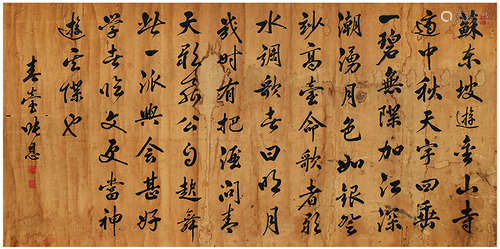 蘇東坡遊金山寺
適中秋天宇四垂
一碧無際加江深
潮湧月色如銀登
妙高臺命歌者歌
水調歌頭曰明月
幾時有把酒問青
天歌系公自起舞
此一派興會甚好
學者臨文更當神
遊其際也
春臺